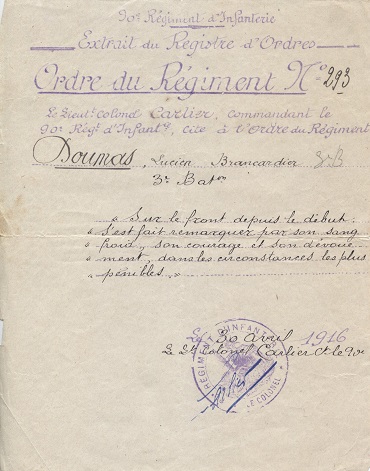 90e Régiment d'Infanterie
Extrait du Registre d'Ordres
Ordre du Régiment N° 293
Le Lieutt colonel Cartier, commandant le
90e Régt d'Infantie, cite à l'Ordre du Régiment
Doumas, Lucien Brancardier
3e Baton
" Sur le front depuis le début :
" S'est fait remarquer par son sang
" froid, son courage et son dévoue-
" ment, dans les circonstances les plus
" pénibles. "
30 avril 1916
Le Lt Colonel Cartier Ct le 90e
RÉGIMENT D'INFANTERIE
LE COLONEL